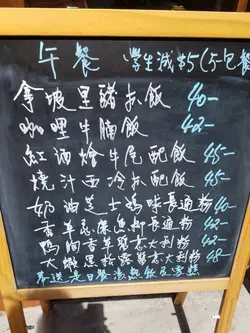 午餐 學生減$5(5包餐
拿坡里豬扒飯 40-
咖哩牛腩飯 42-
紅酒燴牛尾配飯 45-
燒汁西冷扒配飯 45-
奶油芝士鷄味長通粉 40-
香草忌廉魚柳長通粉 42-
鴨胸香草醬意大利粉 42-
大蝦黑松露醬意大利粉 48-
奉送是日餐湯熱飲及